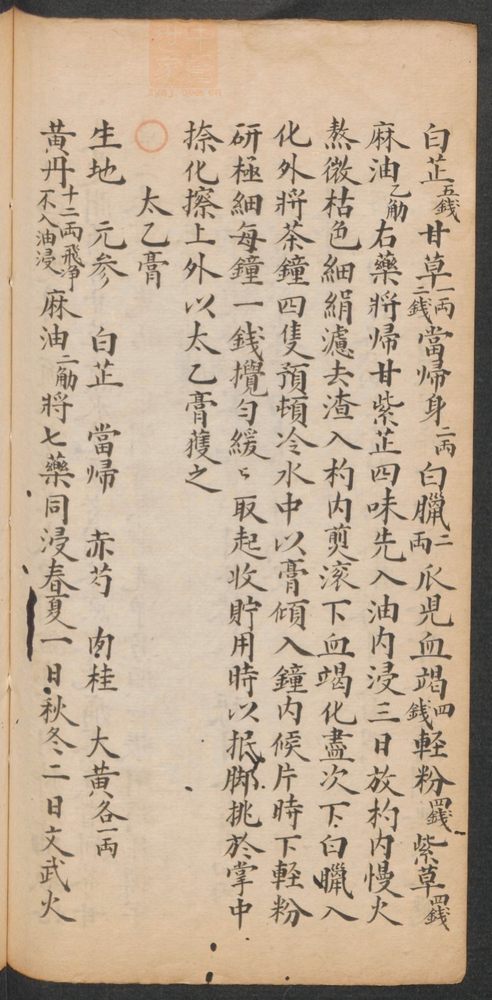 白芷五錢甘草一兩二錢當歸身二兩白臘二兩爪兒血竭四錢輕粉四錢紫草四錢
麻油乙觔右藥將歸甘紫芷四味先入油內浸三日放杓內慢火
熬微枯色細絹濾去渣入杓內煎滚下血竭化盡次下白臘入
化外將茶鐘四隻預頓冷水中以膏傾入鐘內候片時下輕粉
研極細每鐘一錢攪勻緩〻取起收貯用時以抿脚挑於掌中
捺化擦上外以太乙膏護之
○
太乙膏
生地 元参 白芷 當歸 赤芍 肉桂 大黃各一兩
黃丹十二兩飛净不入油浸麻油二觔將七藥同浸春夏一日秋冬二日文武火